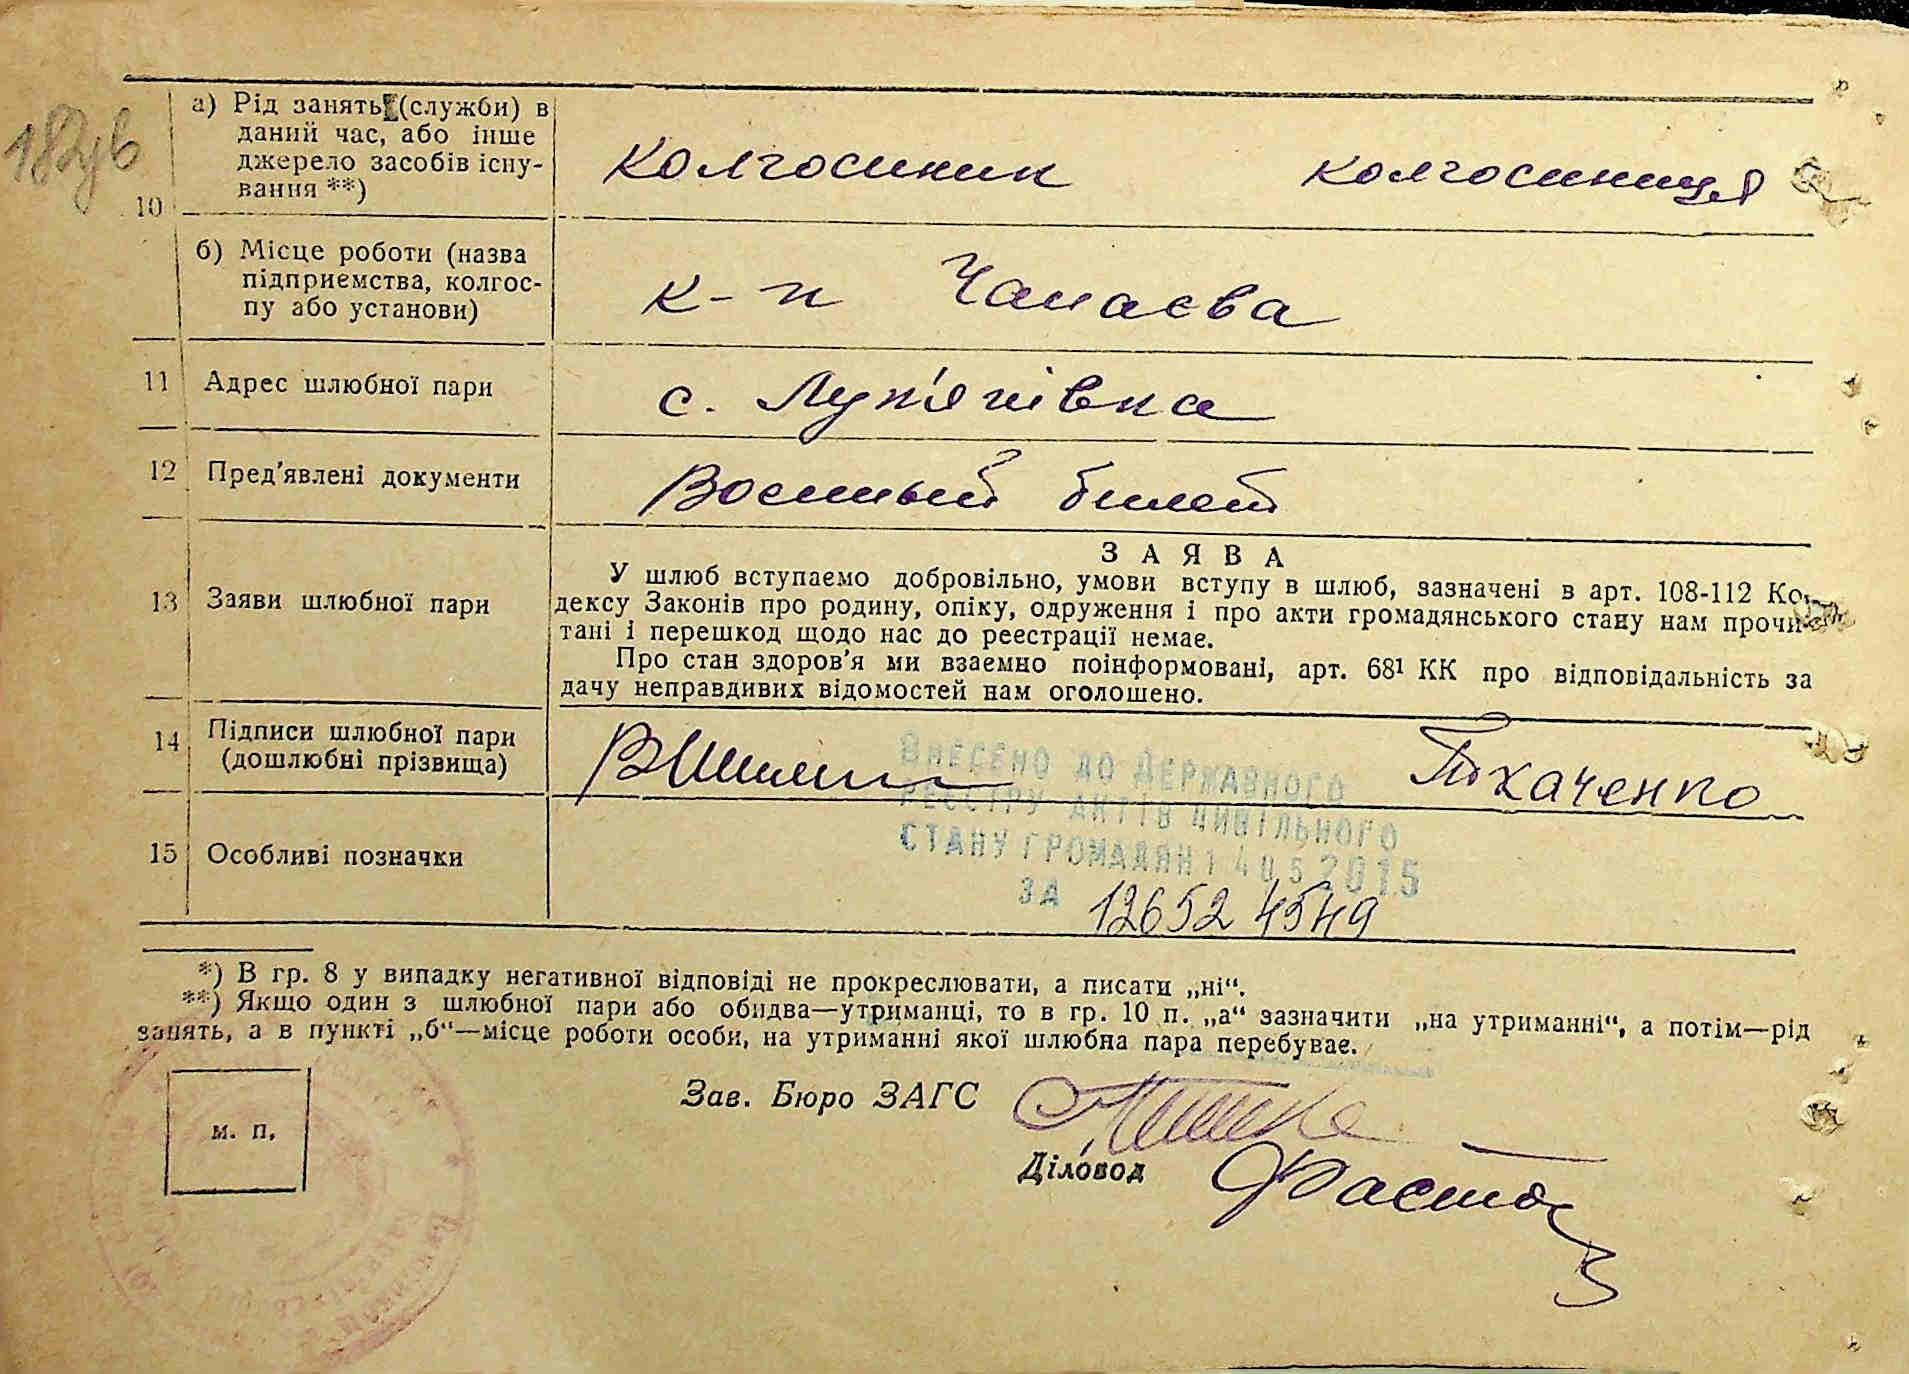 182ув
10
а) Рід занять (служби) в
даний час, або інше
джерело засобів існу-
вання **)
колгоспник колгоспниця
б) Місце роботи (назва
підприємства, колгос-
пу або установи)
к-п Чапаєва
11 Адрес шлюбної пари
с. Луп'янівка
12 Пред'явлені документи
Военный билет
13 Заяви шлюбної пари
ЗАЯВА
У шлюб вступаємо добровільно, умови вступу в шлюб, зазначені в арт. 108-112 Ко-
дексу Законів про родину, опіку, одруження і про акти громадянського стану нам прочи-
тані і перешкод щодо нас до реєстрації немає.
Про стан здоров'я ми взаємно поінформовані, арт. 68¹ КК про відповідальність за
дачу неправдивих відомостей нам оголошено.
14 Підписи шлюбної пари
(дошлюбні прізвища)
Ткаченко
ВНЕСЕНО ДО ДЕРЖАВНОГО
РЕЄСТРУ АКТІВ ЦИВІЛЬНОГО
СТАНУ ГРОМАДЯН 14 05 2015
ЗА 12652 4549
15 Особливі позначки
*) В гр. 8 у випадку негативної відповіді не прокреслювати, а писати „ні“.
**) Якщо один з шлюбної пари або обидва—утриманці, то в гр. 10 п. „а“ зазначити „на утриманні“, а потім—рід
занять, а в пункті „б“—місце роботи особи, на утриманні якої шлюбна пара перебуває.
м. п.
Зав. Бюро ЗАГС
Діловод